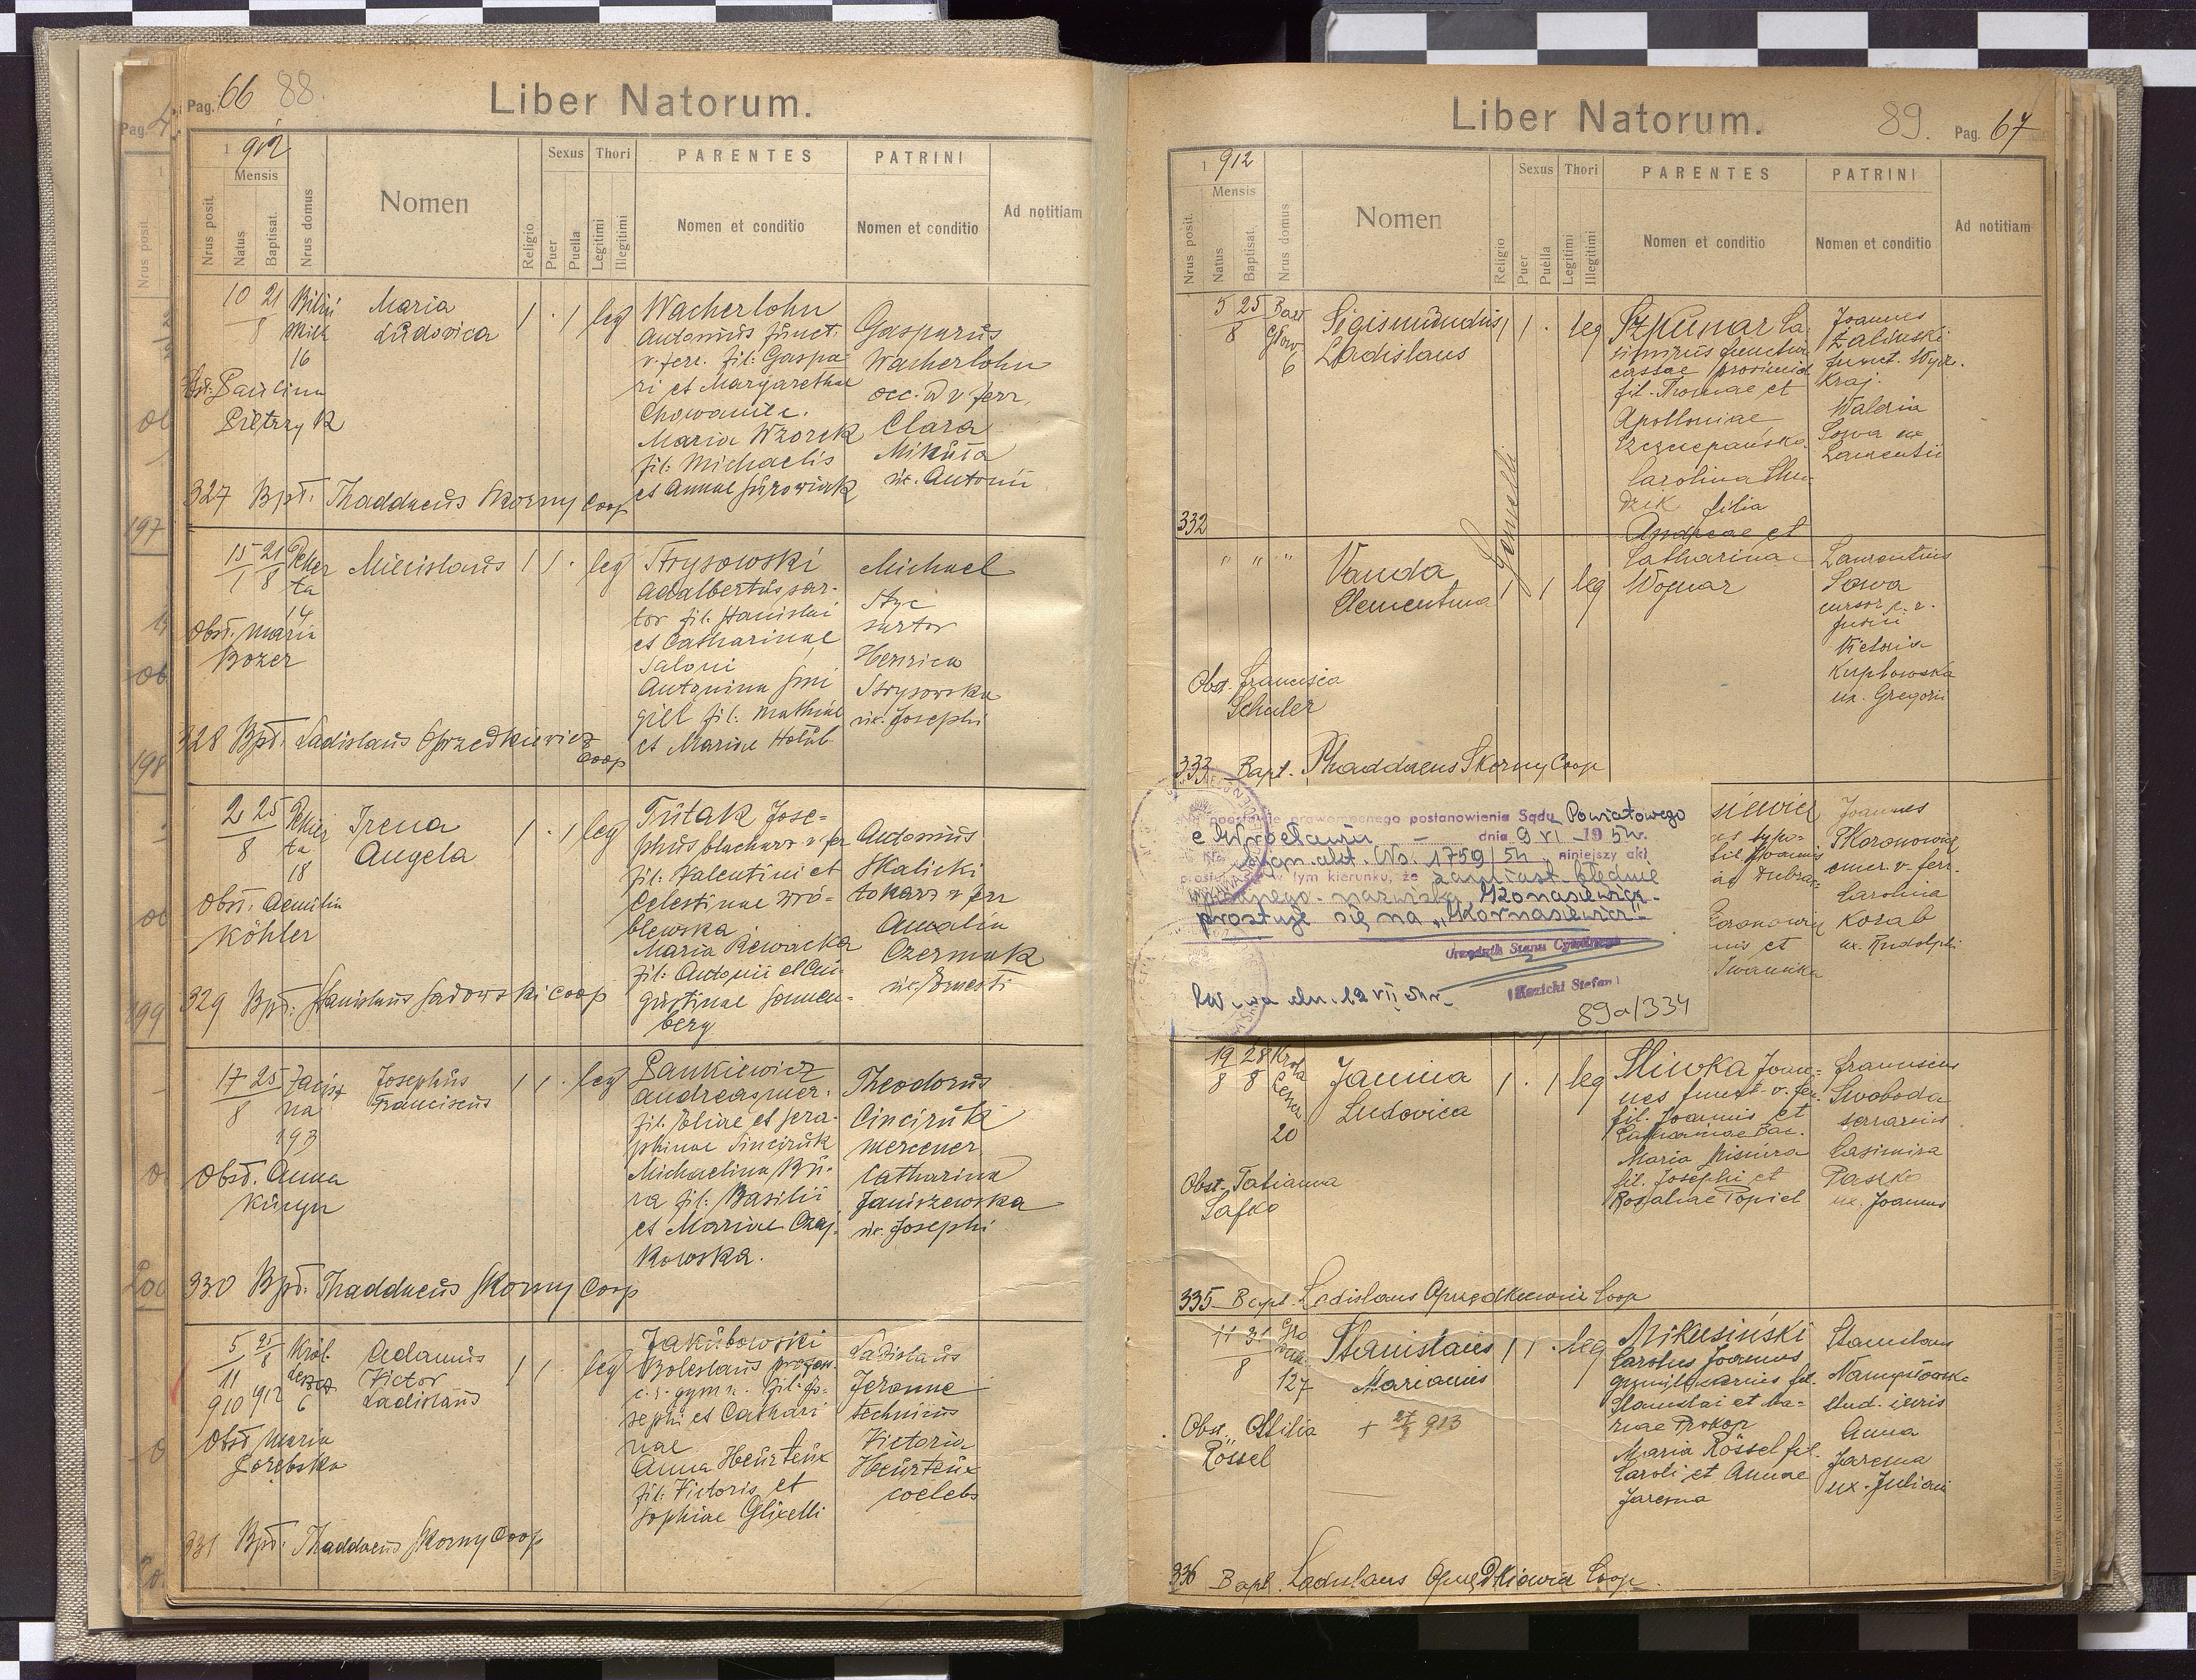 Pag. 66 88.
Liber Natorum.
1912
Mensis
Nrus posit.
Natus
Baptisat.
Nrus domus
Nomen
Religio
Sexus
Puer
Puella
Thori
Legitimi
Illegitimi
PARENTES
Nomen et conditio
PATRINI
Nomen et conditio
Ad notitiam
10 21
8
16
Maria
Ludovica
1 . 1 leg
Wacherlohn
Antonius funct.
v. ferr. fil. Gaspa
ri et Margarethae
Chowaniec.
Maria Wzorek
fil: Michaelis
et Annae
Gasparus
Wacherlohn
occ. v ferr.
Clara
Mikuła
ux. Antonii
Obst: Paulina
Pietrzyk
327 Bpt. Thaddaeus Skorny Coop
15 21
1 8
14
Miecislaus
1 1 . leg
Strysowski
Adalbertus sar-
tor fil. Stanislai
et Catharinae
Saloni
Antonina Smi
giel fil. Mathiae
et Mariae Hołub
Michael
Styc
sartor
Henrica
Strysowska
ux. Josephi
Obst. Maria
Bozer
328 Bpt. Ladislaus Oprzędkiewicz
Coop
2 25
8
18
Irena
Angela
1 . 1 leg
Trutak Jose=
phus blacharz v fer
fil. Valentini et
Celestinae Wró-
blewska.
Maria Rewacka
fil: Antonii et Au-
gustinae Sonnen-
berg
Antonius
Skalicki
tokarz v ferr
Amalia
Czermak
ux. Ernesti
Obst. Aemilia
Köhler
329 Bpt: Stanislaus Sadowski coop
17 25
8
193
Josephus
Franciscus
1 1 . leg
Pankiewicz
Andreas mer.
fil. Eliae et Sera-
phinae Sinciruk
Michaelina Bu-
ra fil: Basilii
et Mariae Czaj-
kowska.
Theodorus
Cinciruk
mercener
Catharina
Janiszewska
ux. Josephi
Obst. Anna
330 Bpt. Thaddaeus Skorny Coop
5 25
11 8
910 912 6
Król.
Leszcz
Adamus
Victor
Ladislaus
1 1 . leg
Jakubowski
Boleslaus profess.
c. r. gymn. fil. Jo-
sephi et Cathari
nae
Anna Heurteux
fil: Victoris et
Sophiae Glixelli
Ladislaus
Jeronne
technicus
Victoria
Heurteux
coelebs
Obst Maria
Porębska
331 Bpt. Thaddaeus Skorny Coop
Liber Natorum.
89. Pag. 67
1912
Mensis
Nrus posit.
Natus
Baptisat.
Nrus domus
Nomen
Religio
Sexus
Puer
Puella
Thori
Legitimi
Illegitimi
PARENTES
Nomen et conditio
PATRINI
Nomen et conditio
Ad notitiam
5 25 Bart
8 Głow
6
Sigismundus
Ladislaus
1 1 . leg
Gemelli
Szpunar Ca-
simirus
cassae provincial
fil. Thomae et
Apolloniae
Szczepańska
Carolina Chu-
dzik filia
Andreae et
Catharinae
Wojnar
Joannes
Zaliński
funct. Wydz.
Kraj.
Waleria
Sowa ux
Laurentii
332
" " "
Vanda
Clementina
1 . 1 leg
Laurentius
Sowa
cursor c. r.
Victoria
ux. Gregorii
Obst. Francisca
Schuler
333 Bapt. Thaddaeus Skorny Coop
Na podstawie prawomocnego postanowienia Sądu Powiatowego
we Wrocławiu - dnia 9 VI 1954r.
Sygn. akt. No. 1759/54 niniejszy akt
prostuje się w tym kierunku, że zamiast błędnie
wpisanego nazwiska „Konasiewicz"
prostuje się na „Kornasiewicz"
Urzędnik Stanu Cywilnego
(Kozicki Stefan)
W-wa dn. 12 VII 54r.
89a/334
Joannes
Skoronowicz
emer. v. ferr.
Carolina
Kozab
ux. Rudolphi
19 28 Król.
8 8 Leszcz.
20
Janina
Ludovica
1 . 1 leg
Śliwka Joan-
nes funct. v. fer.
fil. Joannis et
Catharinae Bac.
Maria Misiura
fil. Josephi et
Rosaliae Topiel
Franciscus
Swoboda
serrarius
Casimira
Paszko
ux. Joannis
Obst. Tatianna
Safko
335 Bapt. Ladislaus Oprzędkiewicz Coop
11 31 Gro
8 deck.
127
Stanislaus
Marianus
1 1 . leg
+ 27/5 913
Mikusiński
Carolus Joannes
fil.
Stanislai et Ma-
riae Prokop
Maria Rössel fil.
Caroli et Annae
Jarema
Stanislaus
Namysłowski
stud. iuris
Anna
Jarema
ux. Juliani
Obst. Ottilia
Rössel
336 Bapt. Ladislaus Oprzędkiewicz Coop.